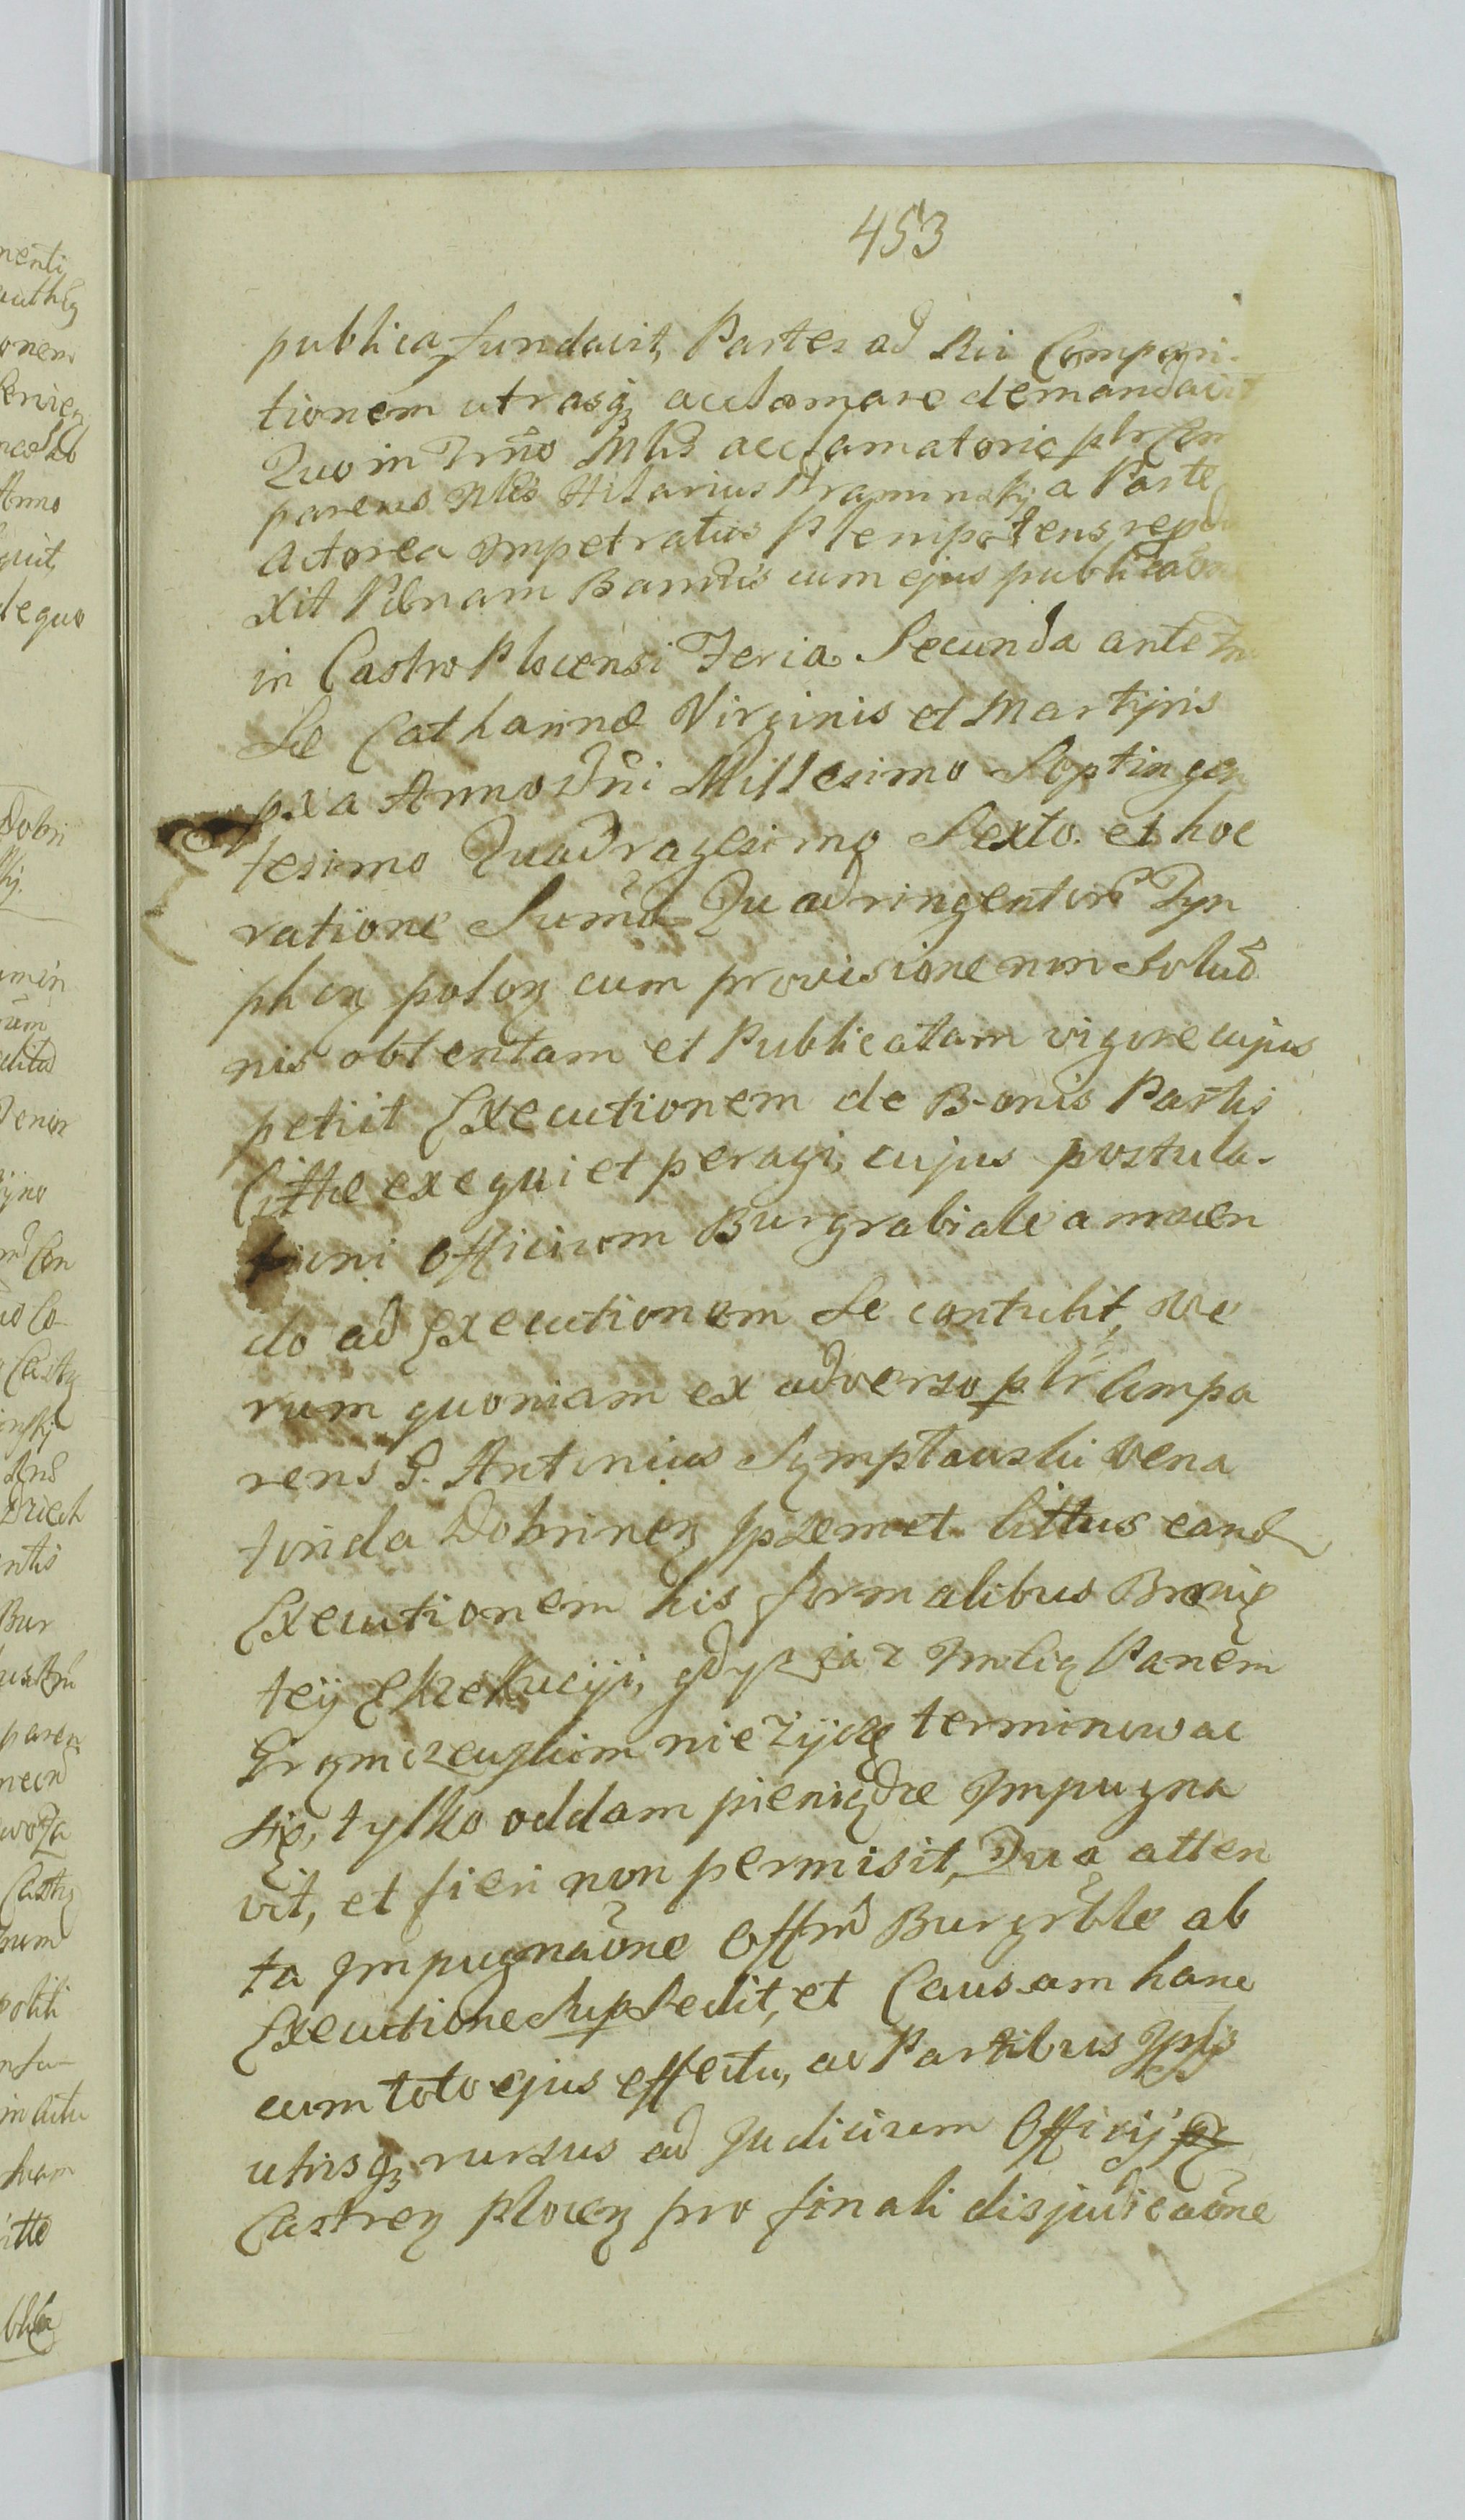 453
publica fundavit, Partes ad Rei Composi-
tionem utrasq acclamare demandavit
Quo in Trno Mlis acclamatorie plr Com
parens Nlis Hilarius Braminskj a Parte
Actorea impetratus Plenipotens repdu
xit Pœnam Bannitis cum ejus publicaone
in Castro Plocensi Feria Secunda ante
Catharinæ Virginis et Martijris
pxa Anno Dni Millesimo Septingen
tesimo Quadragesimo Sexto. et hoc
ratione Sumæ Quadringentor Tyn
phon polon cum provisione non Solud
nis obtentam et Publicatam vigore cujus
petiit Executionem de Bonis Partis
Cittæ exequi et peragi, cujus postula-
tioni Officium Burgrabiale annuen
do ad Executionem Se contulit, Ve
rum quoniam ex adverso plr Compa
rens G. Antonius Symptawski Vena
torida Dobrinen Ipsemet Cittus eand
Executionem his formalibus Bronię
teij Exekucyji, gdysz ja z Imścią Panem
nieżijczę terminowac
się, tylko oddam pieniądze Impugna
vit, et fieri non permisit, Qua atten
ta Impugnaone Offm Burgrble ab
Executione Supsedit, et Causam hanc
cum toto ejus effectu, ac Partibus Ipsis
utrisq rursus ad Judicium Officij
Castren plocen pro finali disjudicaone